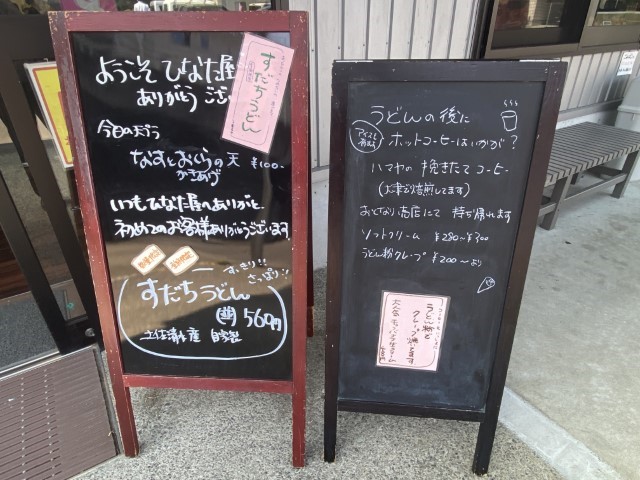 ようこそ ひなた屋
ありがとう ござい
すだちうどん
今日の天ぷら
なすとおくらの天 ¥100-
かきあげ
いつもひなた屋へありがと、
初めてのお客様ありがうございます
すっきり!!
さっぱり!!
すだちうどん
560円
土佐清水産 自家製
うどんの後に
アイスも
あるよ
ホットコーヒーはいかが?
ハマヤの 挽きたてコーヒー
(大津で焙煎してます)
おとなり売店にて 持ち帰れます
ソフトクリーム ¥280〜¥300
うどん粉クレープ ¥200〜より
うどん粉で
クレープ焼いてます